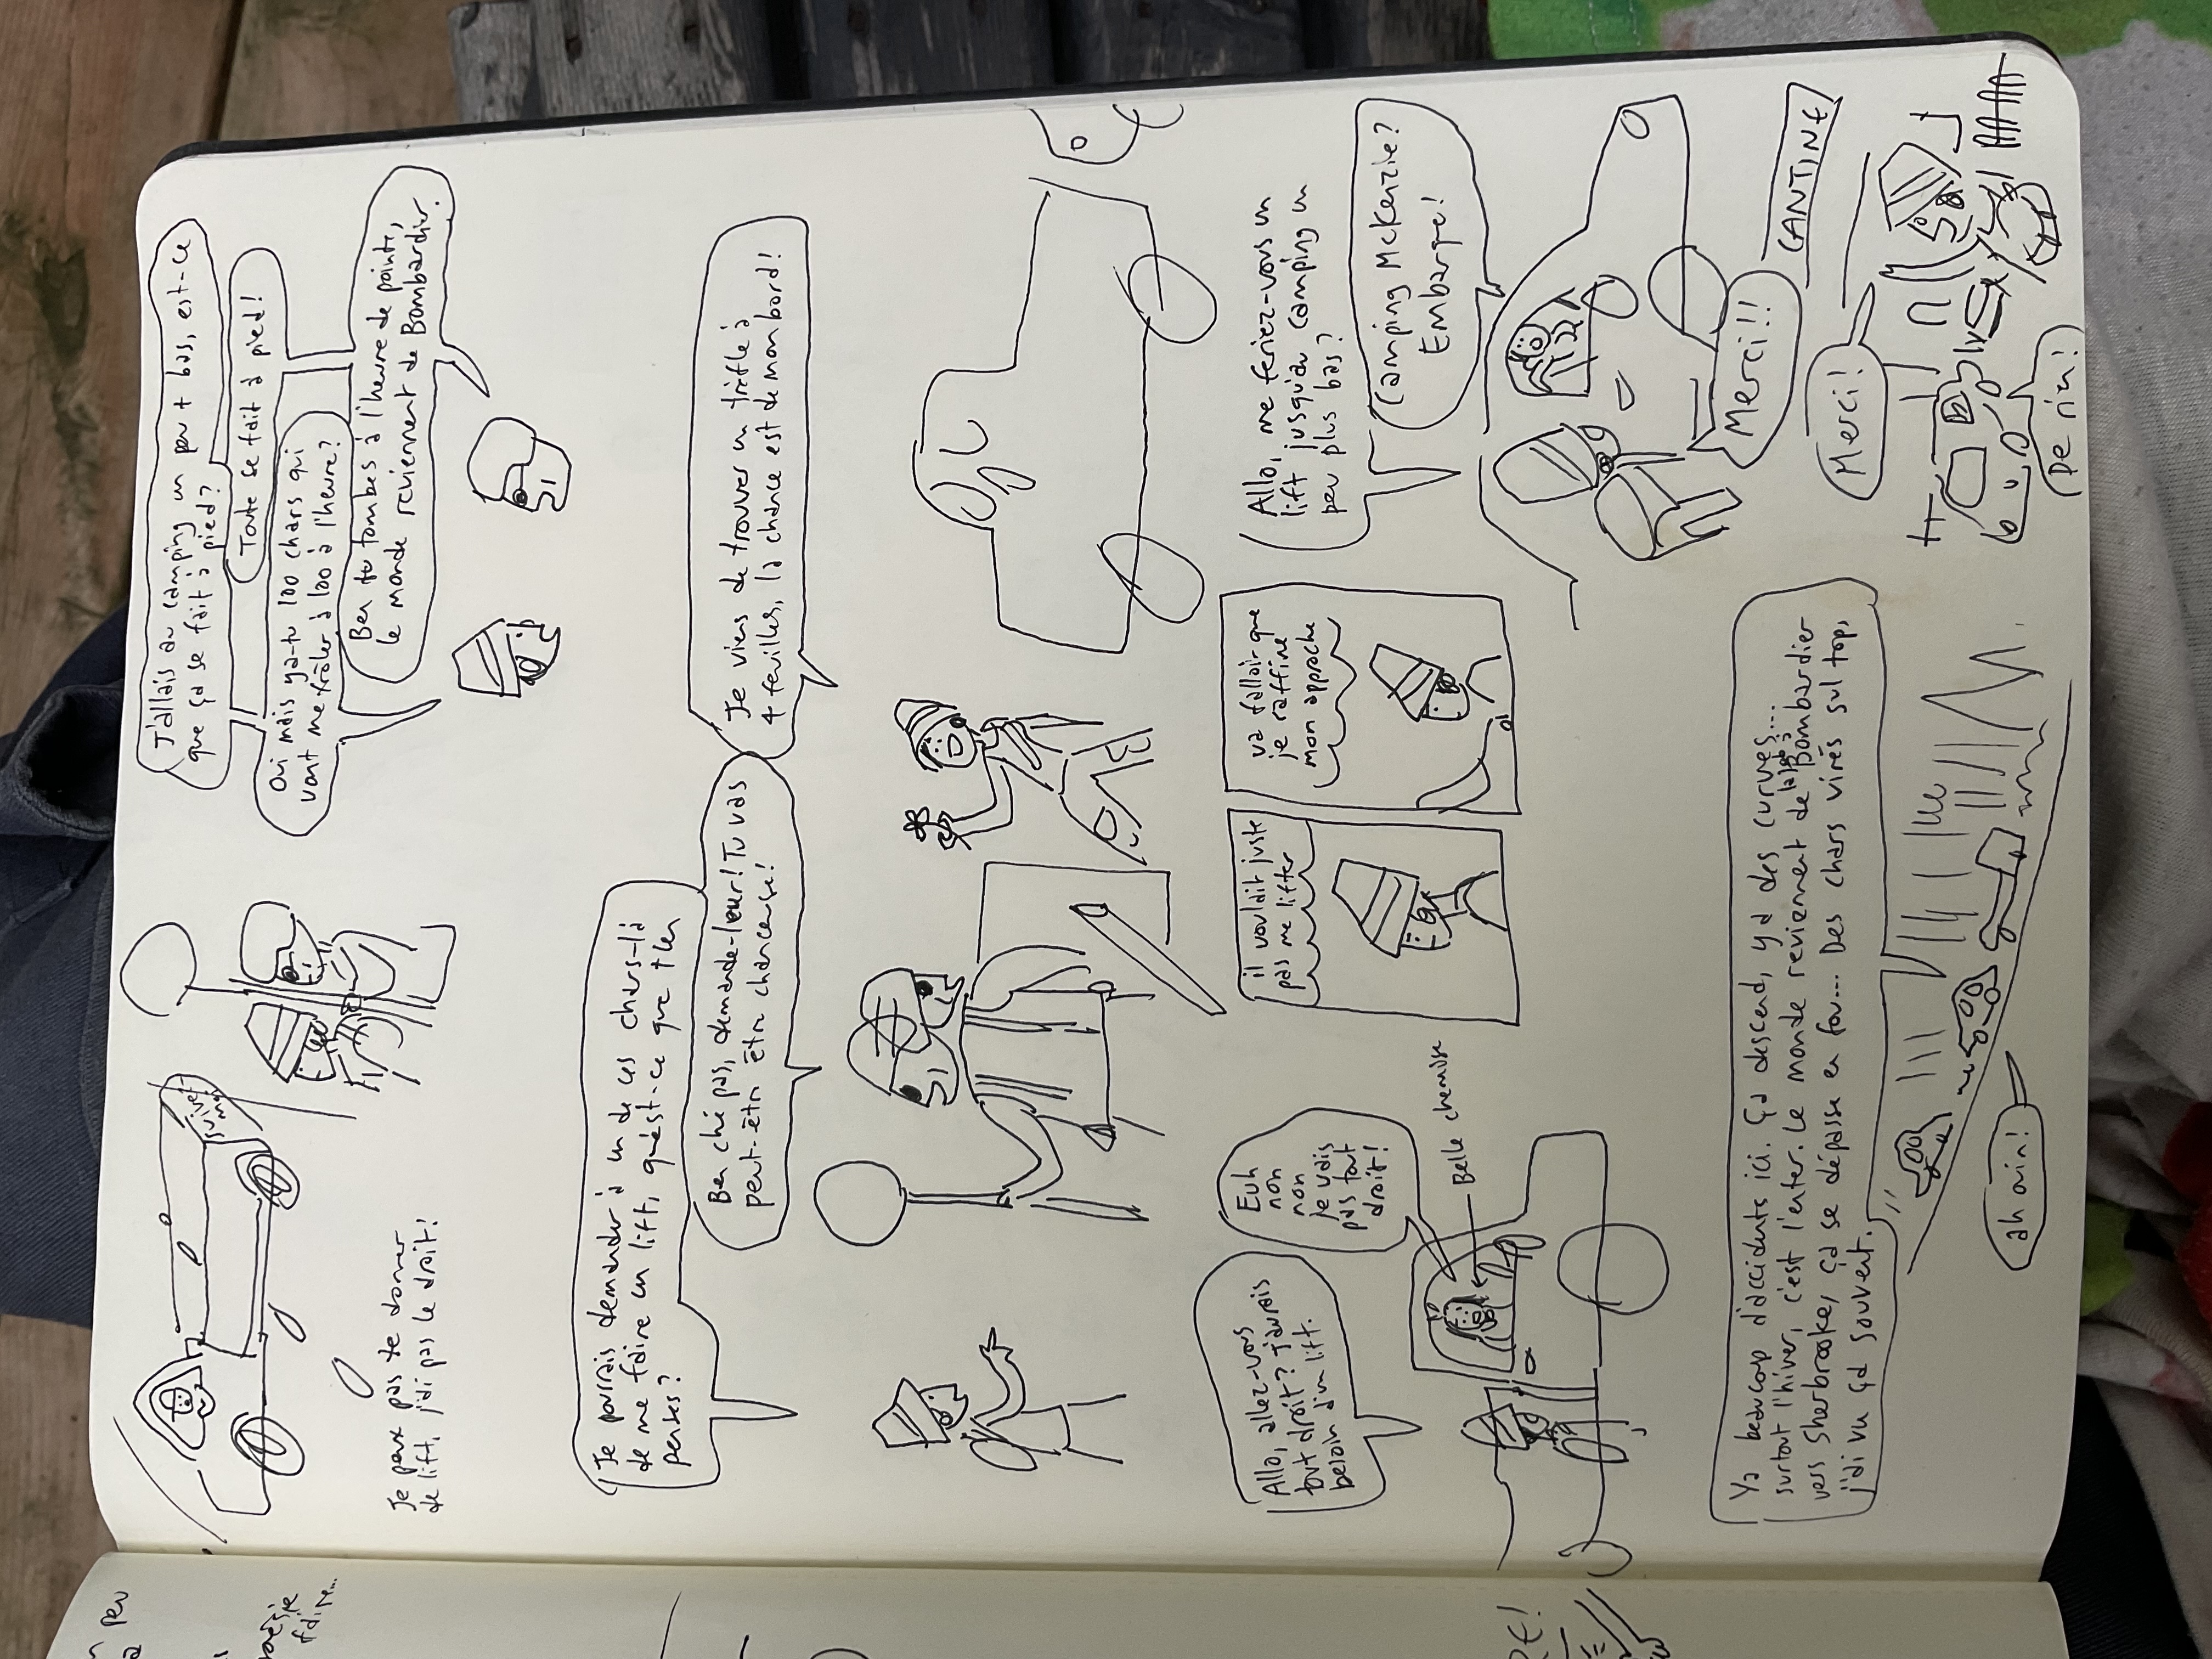 suivez
moi
Je peux pas te donner
de lift, j'ai pas le droit!
J'allais au camping un peu + bas, est-ce
que ça se fait à pied?
Toute se fait à pied!
Oui mais ya-tu 100 chars qui
vont me frôler à 100 à l'heure?
Ben tu tombes à l'heure de pointe,
le monde reviennent de Bombardier.
Je pourrais demander à un de ces chars-là
de me faire un lift, qu'est-ce que t'en
penses?
Ben ché pas, demande-leur! Tu vas
peut-être être chanceuse!
Je viens de trouver un trèfle à
4 feuilles, la chance est de mon bord!
Allo, allez-vous
tout droit? J'aurais
besoin d'un lift.
Euh
non
non
je vais
pas tout
droit!
Belle chemise
il voulait juste
pas me lifter
va falloir que
je raffine
mon approche
Allo, me feriez-vous un
lift jusqu'au camping un
peu plus bas?
Camping McKenzie?
Embarque!
Merci!!!
Ya beaucoup d'accidents ici. Ça descend, y a des curves...
surtout l'hiver, c'est l'enfer. Le monde reviennent de Bombardier
vers Sherbrooke, ça se dépasse en fou... Des chars virés sul top,
j'ai vu ça souvent.
ah ouin!
CANTINE
Merci!
De rien!
un peu
faire...